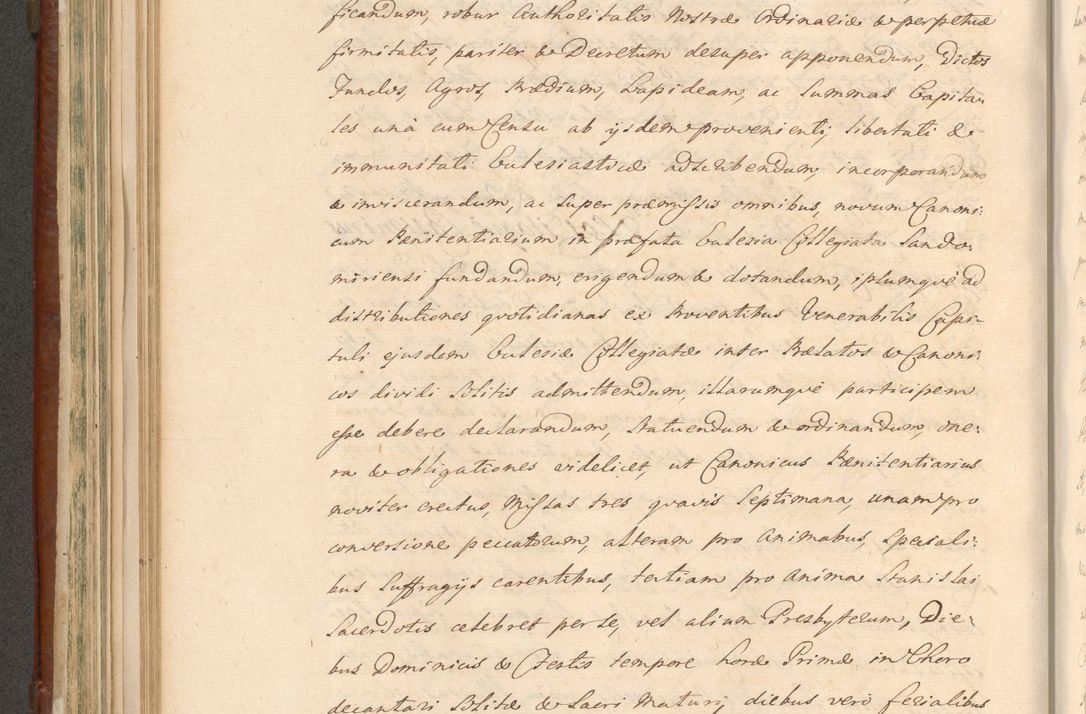 ficandum, robur Authoritatis Nostræ Ordinariæ & perpetuæ
firmitatis, pariter & Decretum desuper apponendum, Dictos
Fundos, Agros, Prædium, Lapideam, ac Summas Capita-
les unà cum Censu ab ijsdem provenienti, libertati &
immunitati Eclesiasticæ adscribendum, incorporandum
& inviscerandum, ac super præmissis omnibus, novum Canoni:
cum Pænitentiarium in præfata Eclesia Collegiata Sando-
miriensi fundandum, erigendum & dotandum, ipsumquè ad
distributiones quotidianas ex Proventibus Venerabilis Capi-
tuli ejusdem Eclesiæ Collegiatæ inter Prælatos & Canoni-
cos dividi solitis admittendum, illarumquè participem
esse debere declarandum, statuendum & ordinandum, one-
ra & obligationes videlicet, ut Canonicus Pænitentiarius
noviter erectus, Missas tres quavis Septimana, unam pro
conversione peccatorum, alteram pro Animabus, speciali:
bus Suffragijs carentibus, tertiam pro Anima Stanislai
Sacerdotis celebret per se, vel alium Presbyterum, Die-
bus Dominicis & Festis tempore horæ Primæ in Choro
decantari solitæ & Sacri Maturi, diebus verò ferialibus